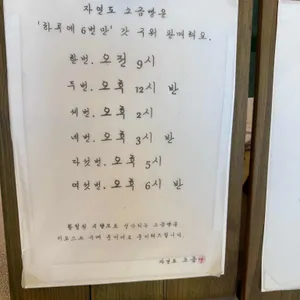 자연도 소금빵은
'하루에 6번만' 갓 구워 판매해요.
한번. 오전 9시
두번. 오후 12시 반
세번. 오후 2시
네번. 오후 3시 반
다섯번. 오후 5시
여섯번. 오후 6시 반
소금빵은
자연도 소금